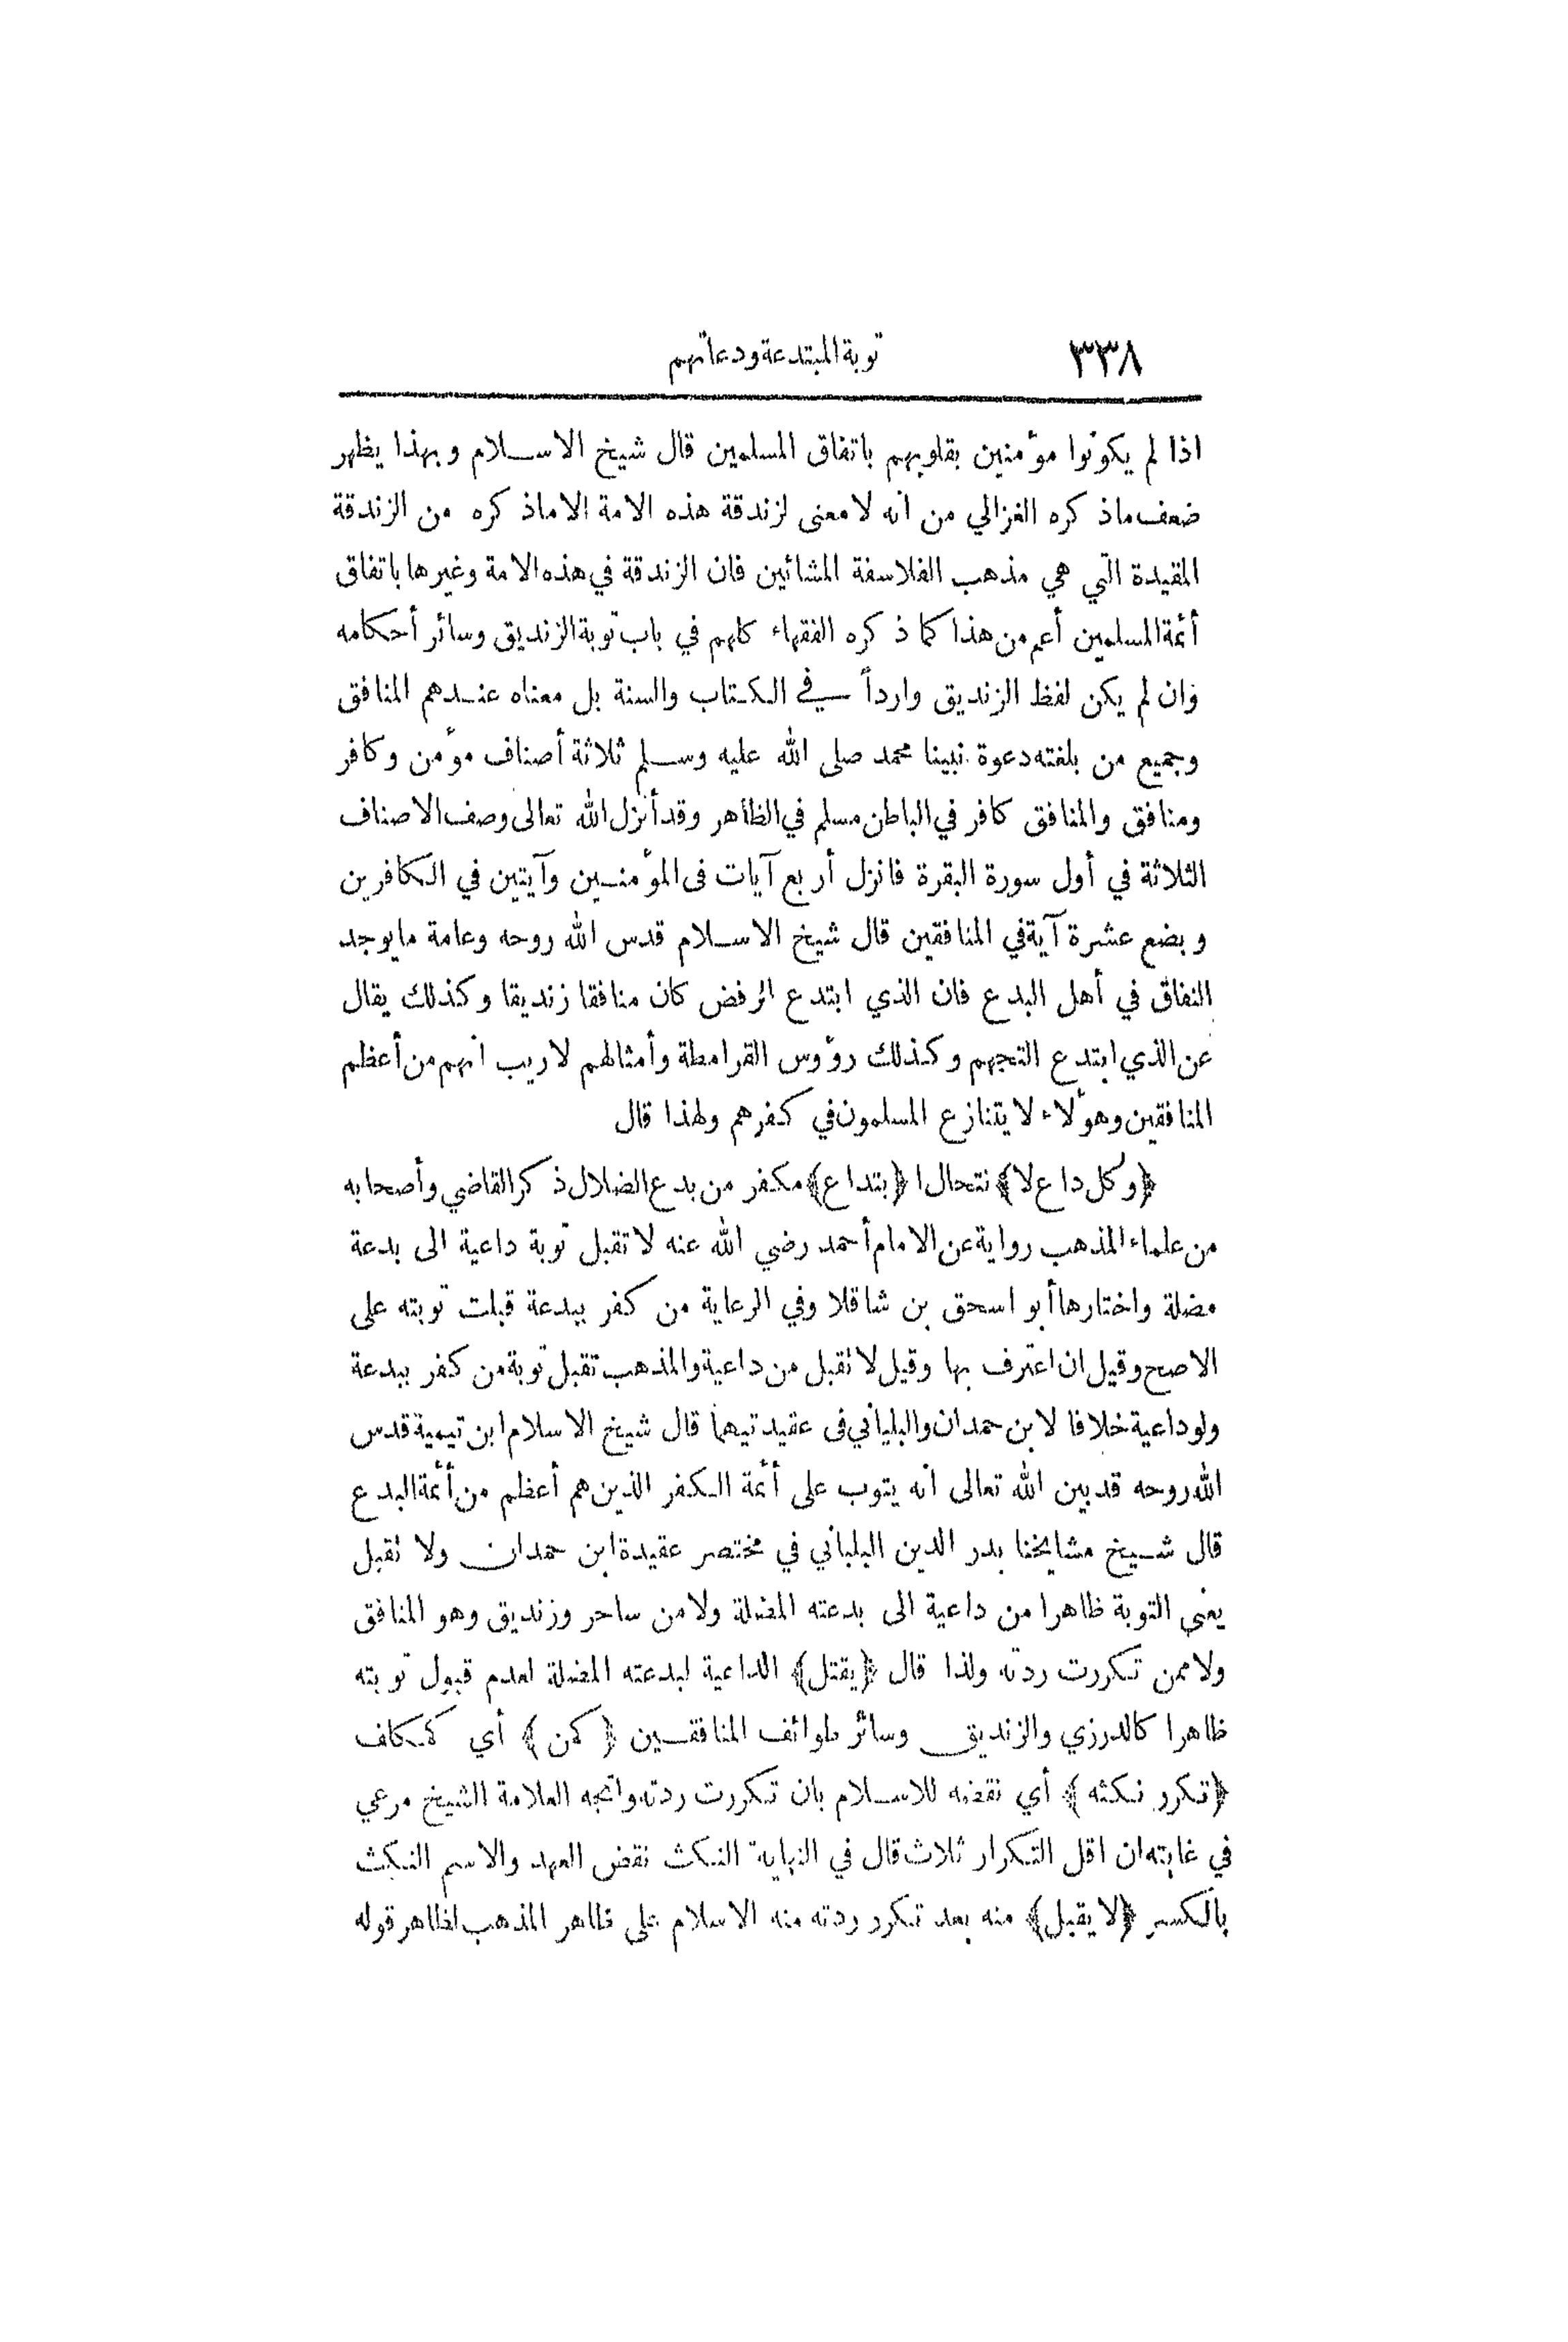 ٣٣٨ توبة المبتدعة ودعاتهم
اذا لم يكونوا مؤمنين بقلوبهم باتفاق المسلمين قال شيخ الاسلام وبهذا يظهر
ضعف ماذكره الغزالي من انه لا معنى لزندقة هذه الامة الا ماذكره من الزندقة
المقيدة التي هي مذهب الفلاسفة المشائين فان الزندقة في هذه الامة وغيرها باتفاق
أئمة المسلمين أعم من هذا كما ذكره الفقهاء كلهم في باب توبة الزنديق وسائر أحكامه
وان لم يكن لفظ الزنديق وارداً في الكتاب والسنة بل معناه عندهم المنافق
وجميع من بلغته دعوة نبينا محمد صلى الله عليه وسلم ثلاثة أصناف مؤمن وكافر
ومنافق والمنافق كافر في الباطن مسلم في الظاهر وقد أنزل الله تعالى وصف الاصناف
الثلاثة في أول سورة البقرة فانزل أربع آيات في المؤمنين وآيتين في الكافرين
وبضع عشرة آية في المنافقين قال شيخ الاسلام قدس الله روحه وعامة مايوجد
النفاق في أهل البدع فان الذي ابتدع الرفض كان منافقا زنديقا وكذلك يقال
عن الذي ابتدع التجهم وكذلك رؤوس القرامطة وأمثالهم لاريب انهم من أعظم
المنافقين وهؤلاء لا يتنازع المسلمون في كفرهم ولهذا قال
﴿وكل داع لا﴾ نتحال ا ﴿بتداع﴾ مكفر من بدع الضلال ذكر القاضي وأصحابه
من علماء المذهب رواية عن الامام أحمد رضي الله عنه لا تقبل توبة داعية الى بدعة
مضلة واختارها أبو اسحق بن شاقلا وفي الرعاية من كفر ببدعة قبلت توبته على
الاصح وقيل ان اعترف بها وقيل لا تقبل من داعية والمذهب تقبل توبة من كفر ببدعة
ولو داعية خلافا لابن حمدان والبلباني في عقيدتيهما قال شيخ الاسلام ابن تيمية قدس
الله روحه قد بين الله تعالى انه يتوب على أئمة الكفر الذين هم أعظم من أئمة البدع
قال شيخ مشايخنا بدر الدين البلباني في مختصر عقيدة ابن حمدان ولا تقبل
يعني التوبة ظاهرا من داعية الى بدعته المضلة ولا من ساحر وزنديق وهو المنافق
ولا ممن تكررت ردته ولذا قال ﴿يقتل﴾ الداعية لبدعته المضلة لعدم قبول توبته
ظاهرا كالدرزي والزنديق وسائر طوائف المنافقين ﴿كمن﴾ أي كمكاف
﴿تكرر نكثه﴾ أي نقضه للاسلام بان تكررت ردته واتجه العلامة الشيخ مرعي
في غايته ان اقل التكرار ثلاث قال في النهاية النكث نقض العهد والاسم النكث
بالكسر ﴿لا يقبل﴾ منه بعد تكرر ردته منه الاسلام على ظاهر المذهب لظاهر قوله